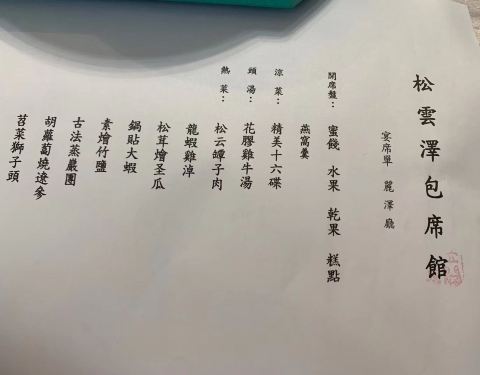 松雲澤包席館
宴席單 麗澤廳
開席盤： 蜜餞 水果 乾果 糕點
燕窩羹
涼菜： 精美十六碟
頭湯： 花膠雞牛湯
熱菜： 松云罈子肉
龍蝦雞淖
松茸燴圣瓜
鍋貼大蝦
素燴竹鹽
古法蒸嚴團
胡蘿蔔燒遼參
苕菜獅子頭